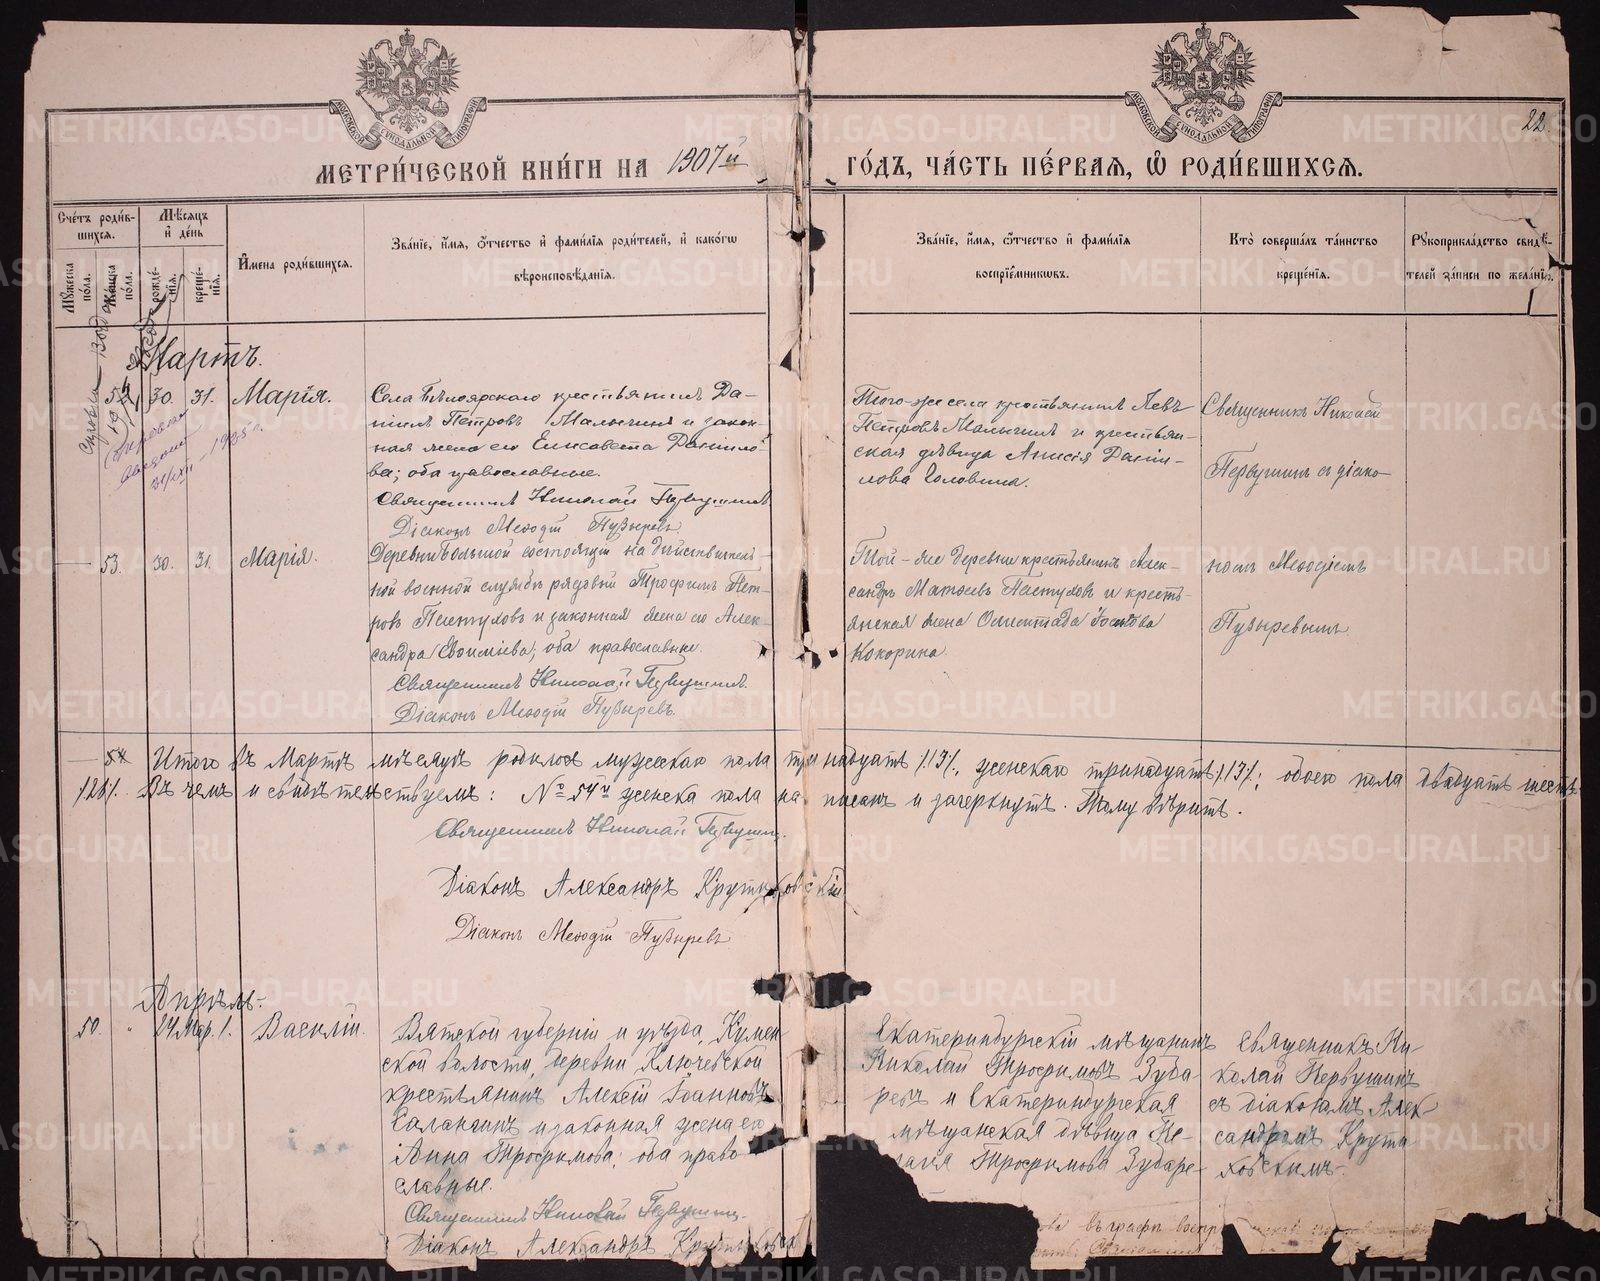 МОСКОВСКОЙ СУНОДАЛЬНОЙ ТИПОГРАФІИ
МОСКОВСКОЙ СУНОДАЛЬНОЙ ТИПОГРАФІИ
22.
МЕТРИ́ЧЕСКОЙ КНИ́ГИ НА 1907й ГО́ДЪ, ЧА́СТЬ ПЕ́РВАЯ, Ѡ҆ РОДИ́ВШИХСЯ.
Сче́тъ роди́в-
шихся.
Му́жеска по́ла.
Же́нска по́ла.
Мѣ́сяцъ и҆ де́нь
рожде́-
нїя.
креще́-
нїя.
И҆мена роди́вшихся.
Зва́нїе, и҆́мя, ѻ҆́тчество и҆ фами́лїя роди́телей, и҆ како́гѡ
вѣроисповѣ́данїя.
Зва́нїе, и҆́мя, ѻ҆́тчество и҆ фами́лїя
воспрїе́мникѡвъ.
Кто̀ соверша́лъ та́инство
креще́нїя.
Рукоприкла́дство свидѣ́-
телей за́писи по жела́нїю.
Мартъ.
30. 31. Марія.
Села Бѣлоярскаго крестьянинъ Да-
ніилъ Петровъ Малыгинъ и закон-
ная жена его Елисавета Даніило-
ва; оба православные.
Священникъ Николай Первушинъ
Діаконъ Меѳодій Пузыревъ
Того-же села крестьянинъ Левъ
Петровъ Малыгинъ и крестьян-
ская дѣвица Анисія Даніи-
лова Головина.
Священникъ Николай
Первушинъ съ діако-
53. 30. 31. Марія.
Деревни Большой состоящій на дѣйствитель-
ной военной службѣ рядовой Трофимъ Пет-
ровъ Пастуховъ и законная жена его Алек-
сандра Евѳиміева; оба православные.
Священникъ Николай Первушинъ.
Діаконъ Меѳодій Пузыревъ.
Той-же деревни крестьянинъ Алек-
сандръ Матѳеевъ Пастуховъ и кресть-
янская жена
Кокорина
номъ Меѳодіемъ
Пузыревымъ
54 Итого въ Мартѣ мѣсяцѣ родилось мужескаго пола тринадцать /13/, женскаго тринадцать /13/; обоего пола двадцать шесть
/26/. Въ чемъ и свидѣтельствуемъ: № 54й женска пола написанъ и зачеркнутъ. Тому вѣрить.
Священникъ Николай Первушинъ.
Діаконъ Александръ Крутиховскій
Діаконъ Меѳодій Пузыревъ
Апрѣль.
50. " 24 Мар. 1. Василій.
Вятской губерніи и уѣзда, Кумен-
ской волости, деревни Ключевской
крестьянинъ Алексій Іоанновъ
Салангинъ и законная жена его
Анна Трофимова; оба право-
славные.
Священникъ Николай Первушинъ.
Діаконъ Александръ Крутиховскій
Екатеринбургскій мѣщанинъ
Николай Трофимовъ Зуба-
ревъ и Екатеринбургская
мѣщанская дѣвица Пе-
лагія Трофимова Зубаре-
Священникъ Ни-
колай Первушинъ
съ діакономъ Алек-
сандромъ Крути-
ховскимъ.
въ графѣ
METRIKI.GASO-URAL.RU